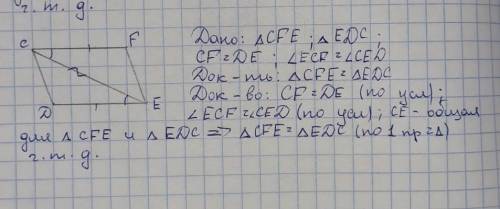 ч. т. д.
C F
D E
Дано: △CFE ; △EDC ;
CF = DE ; ∠ECF = ∠CED
Док-ть: △CFE = △EDC
Док-во: CF = DE (по усл) ;
∠ECF = ∠CED (по усл) ; CE - общая
для △CFE и △EDC => △CFE = △EDC (по 1 пр = △)
ч. т. д.